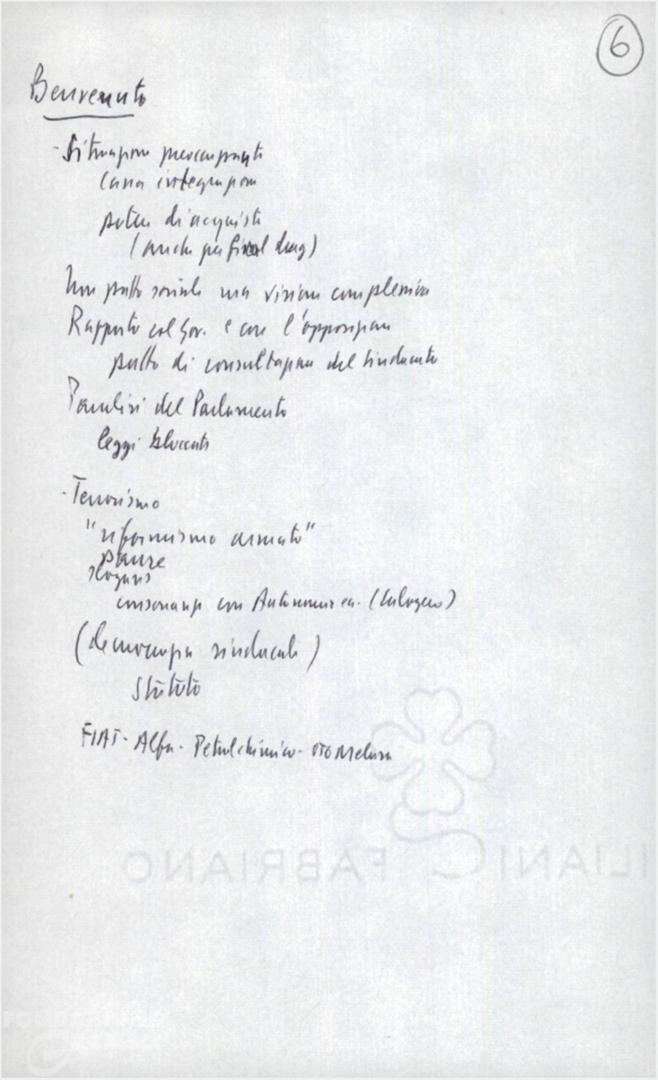 6
Benvenuto
- Situazione preoccupante
Cassa integrazione
potere d'acquisto
(anche per fiscal drag)
Non patto sociale ma visione complessiva
Rapporto col Gov. e con l'opposizione
patto di consultazione del sindacato
Paralisi del Parlamento
leggi bloccate
- Terrorismo
"riformismo armato"
paure
slogans
consonanze con Autonomia ea. (Calogero)
(democrazia sindacale)
Statuto
FIAT - Alfa - Petrolchimico - OTO Melara
ILIANI FABRIANO